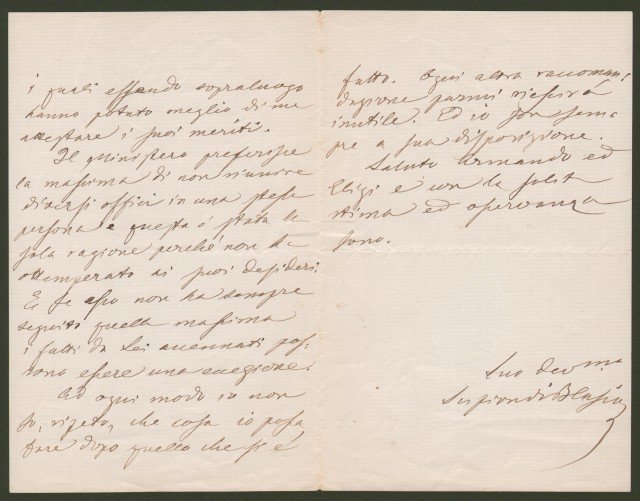 i quali essendo sopraluogo
hanno potuto meglio di me
attestare i suoi meriti.
Il Ministero preferisce
la massima di non riunire
diversi offici in una stessa
persona e questa è stata la
sola ragione perché non ha
ottemperato ai suoi desideri.
E se esso non ha sempre
seguito quella massima
i fatti da Lei accennati pos=
sono essere una eccezione.
Ad ogni modo io non
so, ripeto, che cosa io possa
dire dopo quello che si è
fatto. Ogni altra raccoman=
dazione parmi riescirà
inutile. Ed io son sem
pre a sua disposizione.
Saluto Armando ed
Eligi e con la solita
stima ed osservanza
sono.
Suo dev.mo
di Blasio